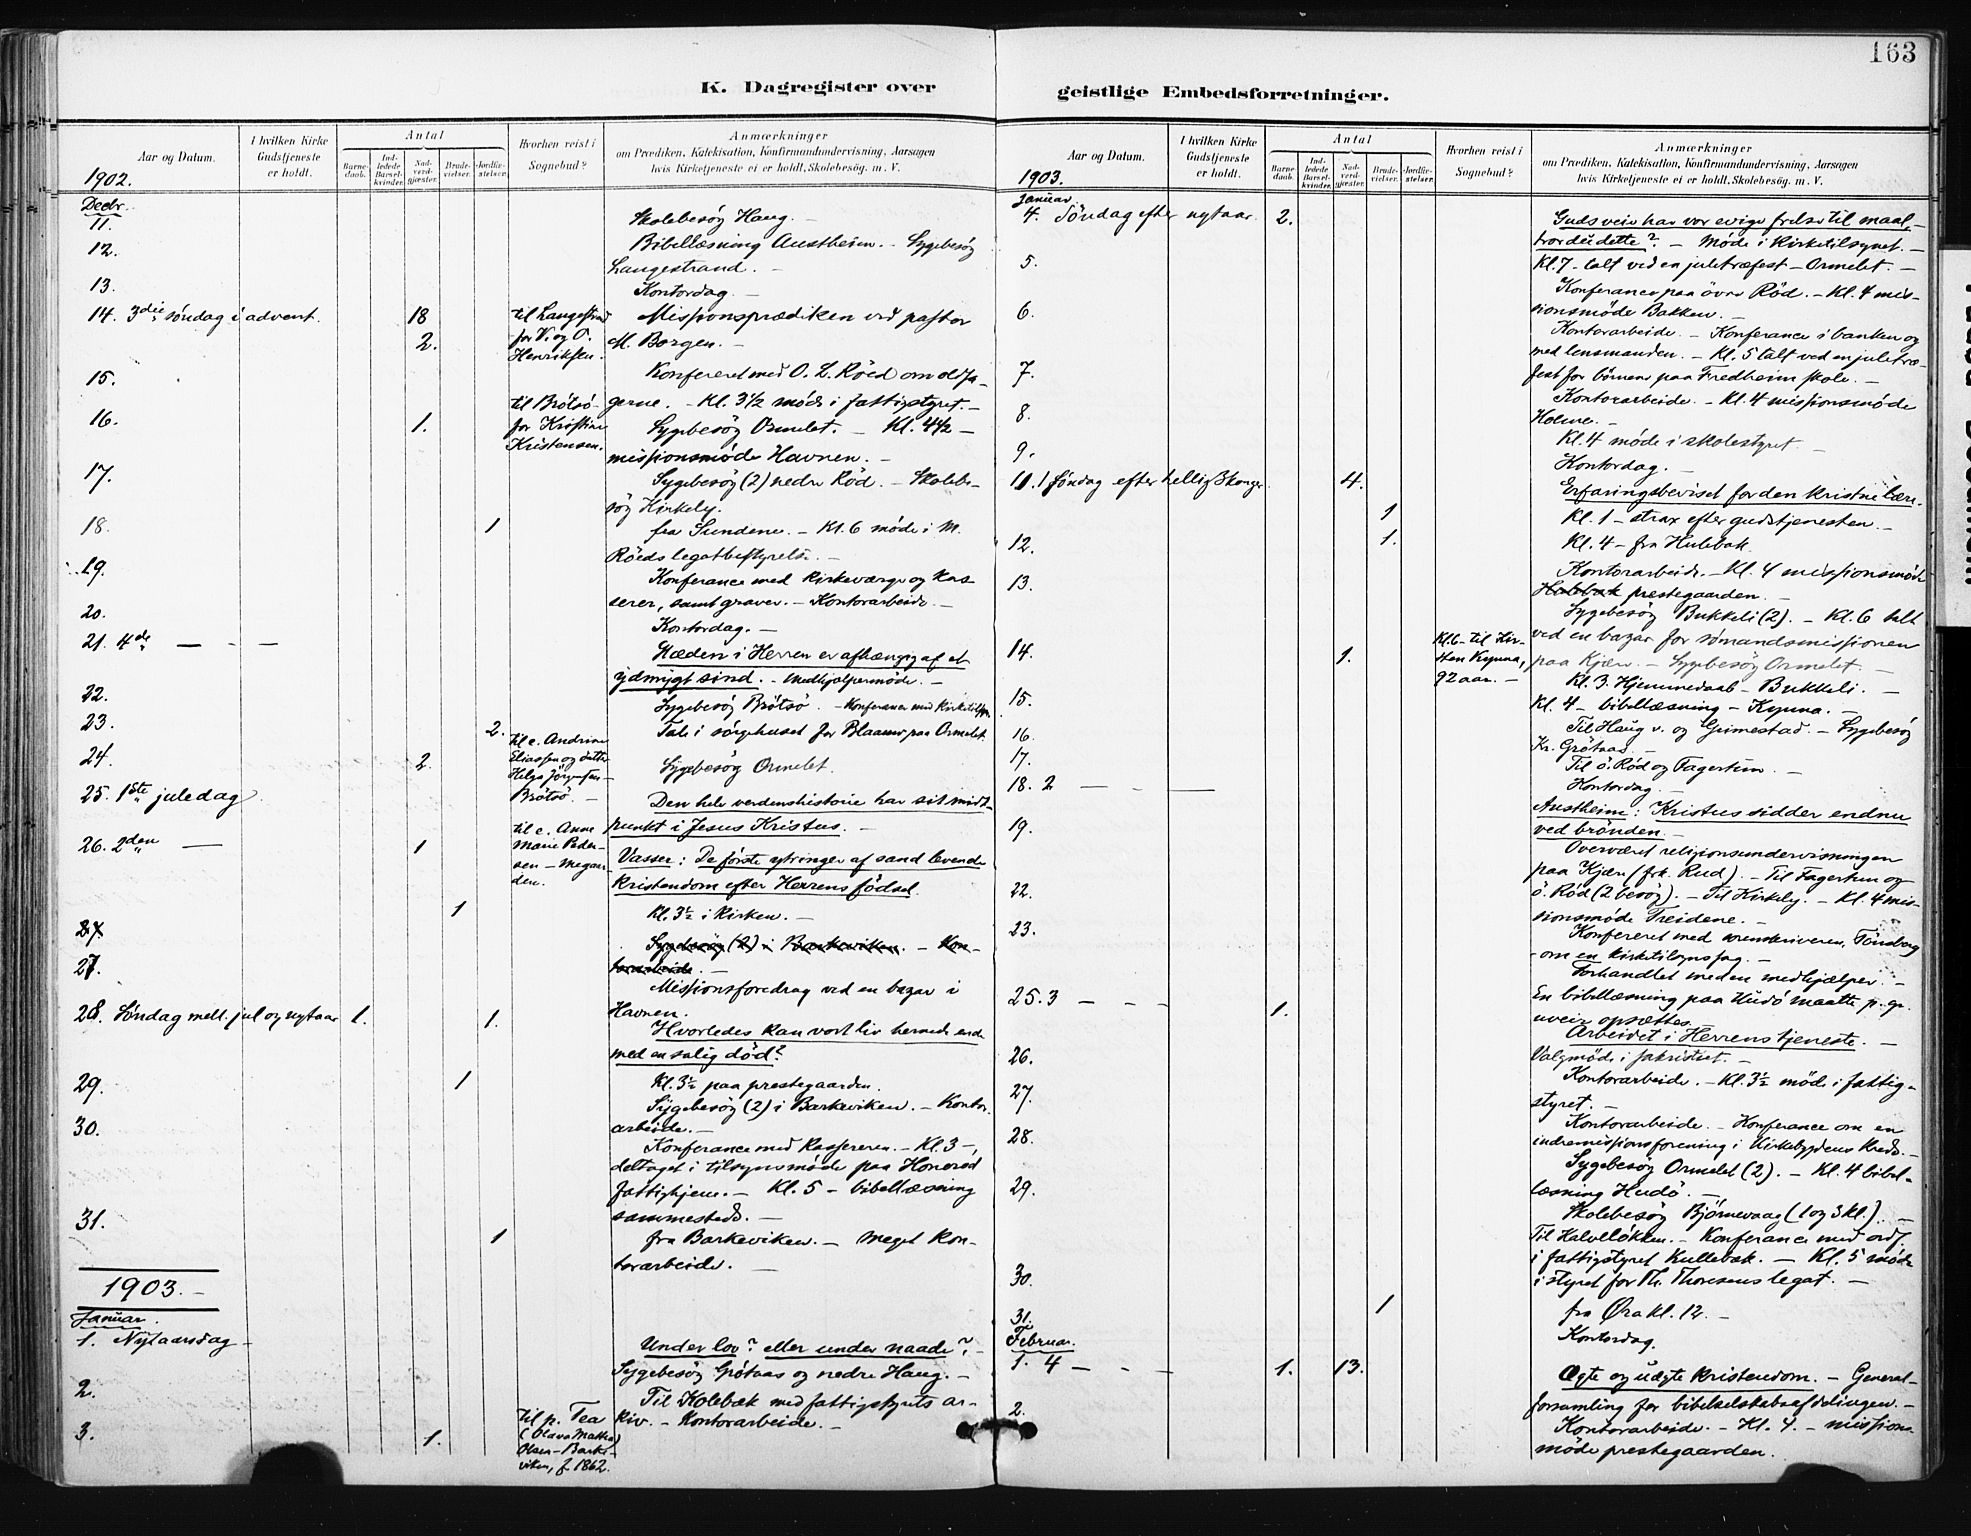 163
K. Dagregister over
geistlige Embedsforretninger.
Aar og Datum.
I hvilken Kirke
Gudstjeneste
er holdt.
Antal
Barne-
daab.
Ind-
ledede
Barsel-
kvinder.
Nad-
verd-
gjæster.
Brude-
vielser.
Jordfæ-
stelser.
Hvorhen reist i
Sognebud?
Anmærkninger
om Prædiken, Katekisation, Konfirmandundervisning, Aarsagen
hvis Kirketjeneste ei er holdt, Skolebesög. m. V.
1902.
Decbr.
11. Skolebesög Haug. -
12. Bibellæsning Austheim. - Sygebesög
Langestrand. -
13. Kontordag. -
14. 3die søndag i advent. 18 til Langestrand Missionsprædiken ved pastor
2. for V. og O. M. Borgen. -
Henriksen.
15. Konfereret med O. L. Röed om
til Brötsö- gerne. - Kl. 3 1/2 möde i fattigstyret. -
16. 1. for Kristine Sygebesög Ormelet. - Kl. 4 1/2 -
Kristensen. missionsmöde Havnen. -
17. Sygebesög (2) nedre Röd. - Skolebe-
sög Kirkely.
18. 1 fra Sundene. - Kl. 6 möde i M.
Röeds legatbestyrelse. -
19. Konferance med kirkeværge og kas-
serer, samt graver. - Kontorarbeide. -
20. Kontordag. -
21. 4de - - - Glæden i Herren er afhængig af et
ydmygt sind. - Medhjælpermöde. -
22. Sygebesög Brötsö. - Konferance med kirketilsyn.
23. 2. Tale i sörgehuset for Blaamo paa Ormelet.
til e. Andrine
24. 2. Eliassen og datter Sygebesög Ormelet.
Helga Jörgensen -
25. 1ste juledag Brötsö. - Den hele verdenshistorie har sit midt-
punkt i Jesus Kristus. -
26. 2den - 1 til e. Anne
Marie Peder-
sen - Megaar-
den.
Vasser: De förste ytringer af sand levende
kristendom efter Herrens födsel.
1 Kl. 3 1/2 i kirken. -
27. Sygebesög (2) i Barkeviken. - Kon-
torarbeide. -
27. Missionsforedrag ved en bazar i
Havnen.
28. Søndag mell. jul og nytaar 1. 1. Hvorledes kan vort liv hernede ende
med en salig død?
1 Kl. 3 1/2 paa prestegaarden.
29. Sygebesög (2) i Barkeviken. - Kontor-
arbeide. -
30. Konferance med kassereren. - Kl. 3 -
deltaget i tilsynsmöde paa Honeröd
fattighjem. - Kl. 5 - bibellæsning
sammesteds. -
31. 1 fra Barkeviken. - Meget kon-
torarbeide. -
1903. -
Januar.
1. Nytaarsdag - Under lov? eller under naade?
Sygebesög Grötaas og nedre Haug. -
2. Til Kolebæk med fattigstyrets ar-
kiv. - Kontorarbeide. -
3. 1. til p. Tea
(Olava Mathea)
Olsen - Barke-
viken, f. 1862.
Aar og Datum.
I hvilken Kirke
Gudstjeneste
er holdt.
Antal
Barne-
daab.
Ind-
ledede
Barsel-
kvinder.
Nad-
verd-
gjæster.
Brude-
vielser.
Jordfæ-
stelser.
Hvorhen reist i
Sognebud?
Anmærkninger
om Prædiken, Katekisation, Konfirmandundervisning, Aarsagen
hvis Kirketjeneste ei er holdt, Skolebesög. m. V.
1903.
Januar
4. Söndag efter nytaar 2. Guds veie har vor evige frelse til maal, -
tror du dette? - Möde i kirketilsynet. -
5. Kl. 7 - talt ved en juletræfest - Ormelet. -
Konferance paa övre Röd. - Kl. 4 mis-
6. sionsmöde Bakken. -
Kontorarbeide. - Konferance i banken og
med lensmanden. - Kl. 5 talt ved en juletræ-
7. fest for börnene paa Fredheim skole. -
Kontorarbeide. - Kl. 4 missionsmöde
8. Holme. -
Kl. 4 möde i skolestyret.
9. Kontordag. -
11. 1 söndag efter hellig 3 konger 4. Erfaringsbeviset for den kristne lære.
1 Kl. 1 - strax efter gudstjenesten. -
12. 1. Kl. 4 - fra Hulebak.
13. Kontorarbeide. - Kl. 4 missionsmöde
Holebak prestegaarden. -
Sygebesög Bukkeli (2). - Kl. 6 talt
ved en bazar for sömandsmissionen
14. 1. Kl. 6 - til Kir-
sten Kynna,
92 aar. -
paa Kjær. - Sygebesög Ormelet. -
Kl. 3. Hjemmedaab - Bukkeli. -
15. Kl. 4 - bibellæsning - Kynna. -
16. Til Haug v. og Grimestad. - Sygebesög
Kr. Grötaas. -
17. Til ö. Röd og Fagertun. -
18. 2 - - - Kontordag. -
Austheim: Kristus sidder endnu
19. ved brönden. -
Overværet religionsundervisningen
paa Kjær (frk. Rud). - Til Fagertun og
22. ö. Röd (2 besög). - Til Kirkely. - Kl. 4 mis-
sionsmöde Treidene. -
23. Konfereret med sorenskriveren, Tönsberg
- om en kirketilsynssag. -
Forhandlet med en medhjælper. -
25. 3 - - - 1. En bibellæsning paa Hudö maatte p. gr.
uveir opsættes.
Arbeidet i Herrens tjeneste. -
26. Valgmöde i sakristiet. -
Kontorarbeide. - Kl. 3 1/2 möde i fattig-
27. styret. -
Kontorarbeide. - Konferance om en
28. indremissionsforening i Kirkebygdens kreds. -
Sygebesög Ormelet (2). - Kl. 4 bibel-
29. læsning Hudö. -
Skolebesög Björnevaag (1 og 3 kl.). -
Til Halvelökken. - Konferance med ordf.
i fattigstyret Kullebak. - Kl. 5 möde
30. i styret for Th. Thoresens legat. -
1 fra Øra kl. 12. -
31. Kontordag.
Februar.
1. 4 - - - 1. 13. Ægte og uægte kristendom. - General-
forsamling for bibelselskabsafdelingen. -
2. Kontorarbeide. - Kl. 4. - missions-
möde prestegaarden.